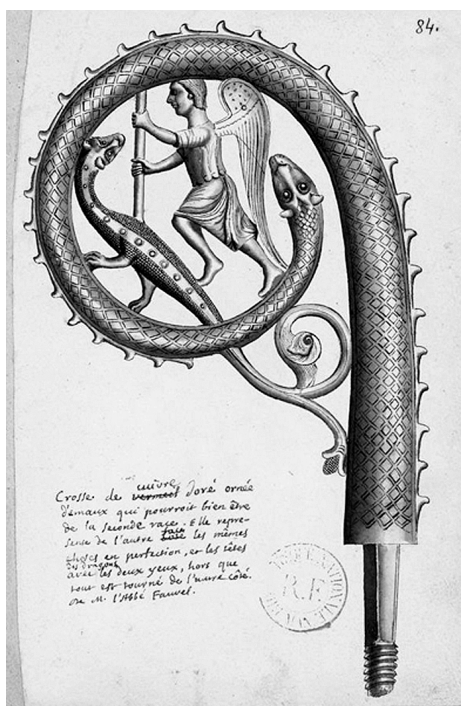 84.
Crosse de cuivre vermeil doré ornée
d'emaux qui pourroit bien être
de la seconde race. Elle repre-
sente de l'autre face les mêmes
choses en perfection, et les têtes
des dragons
avec les deux yeux, hors que
tout est tourné de l'autre côté.
M. l'Abbé Fauvel.
R.F.